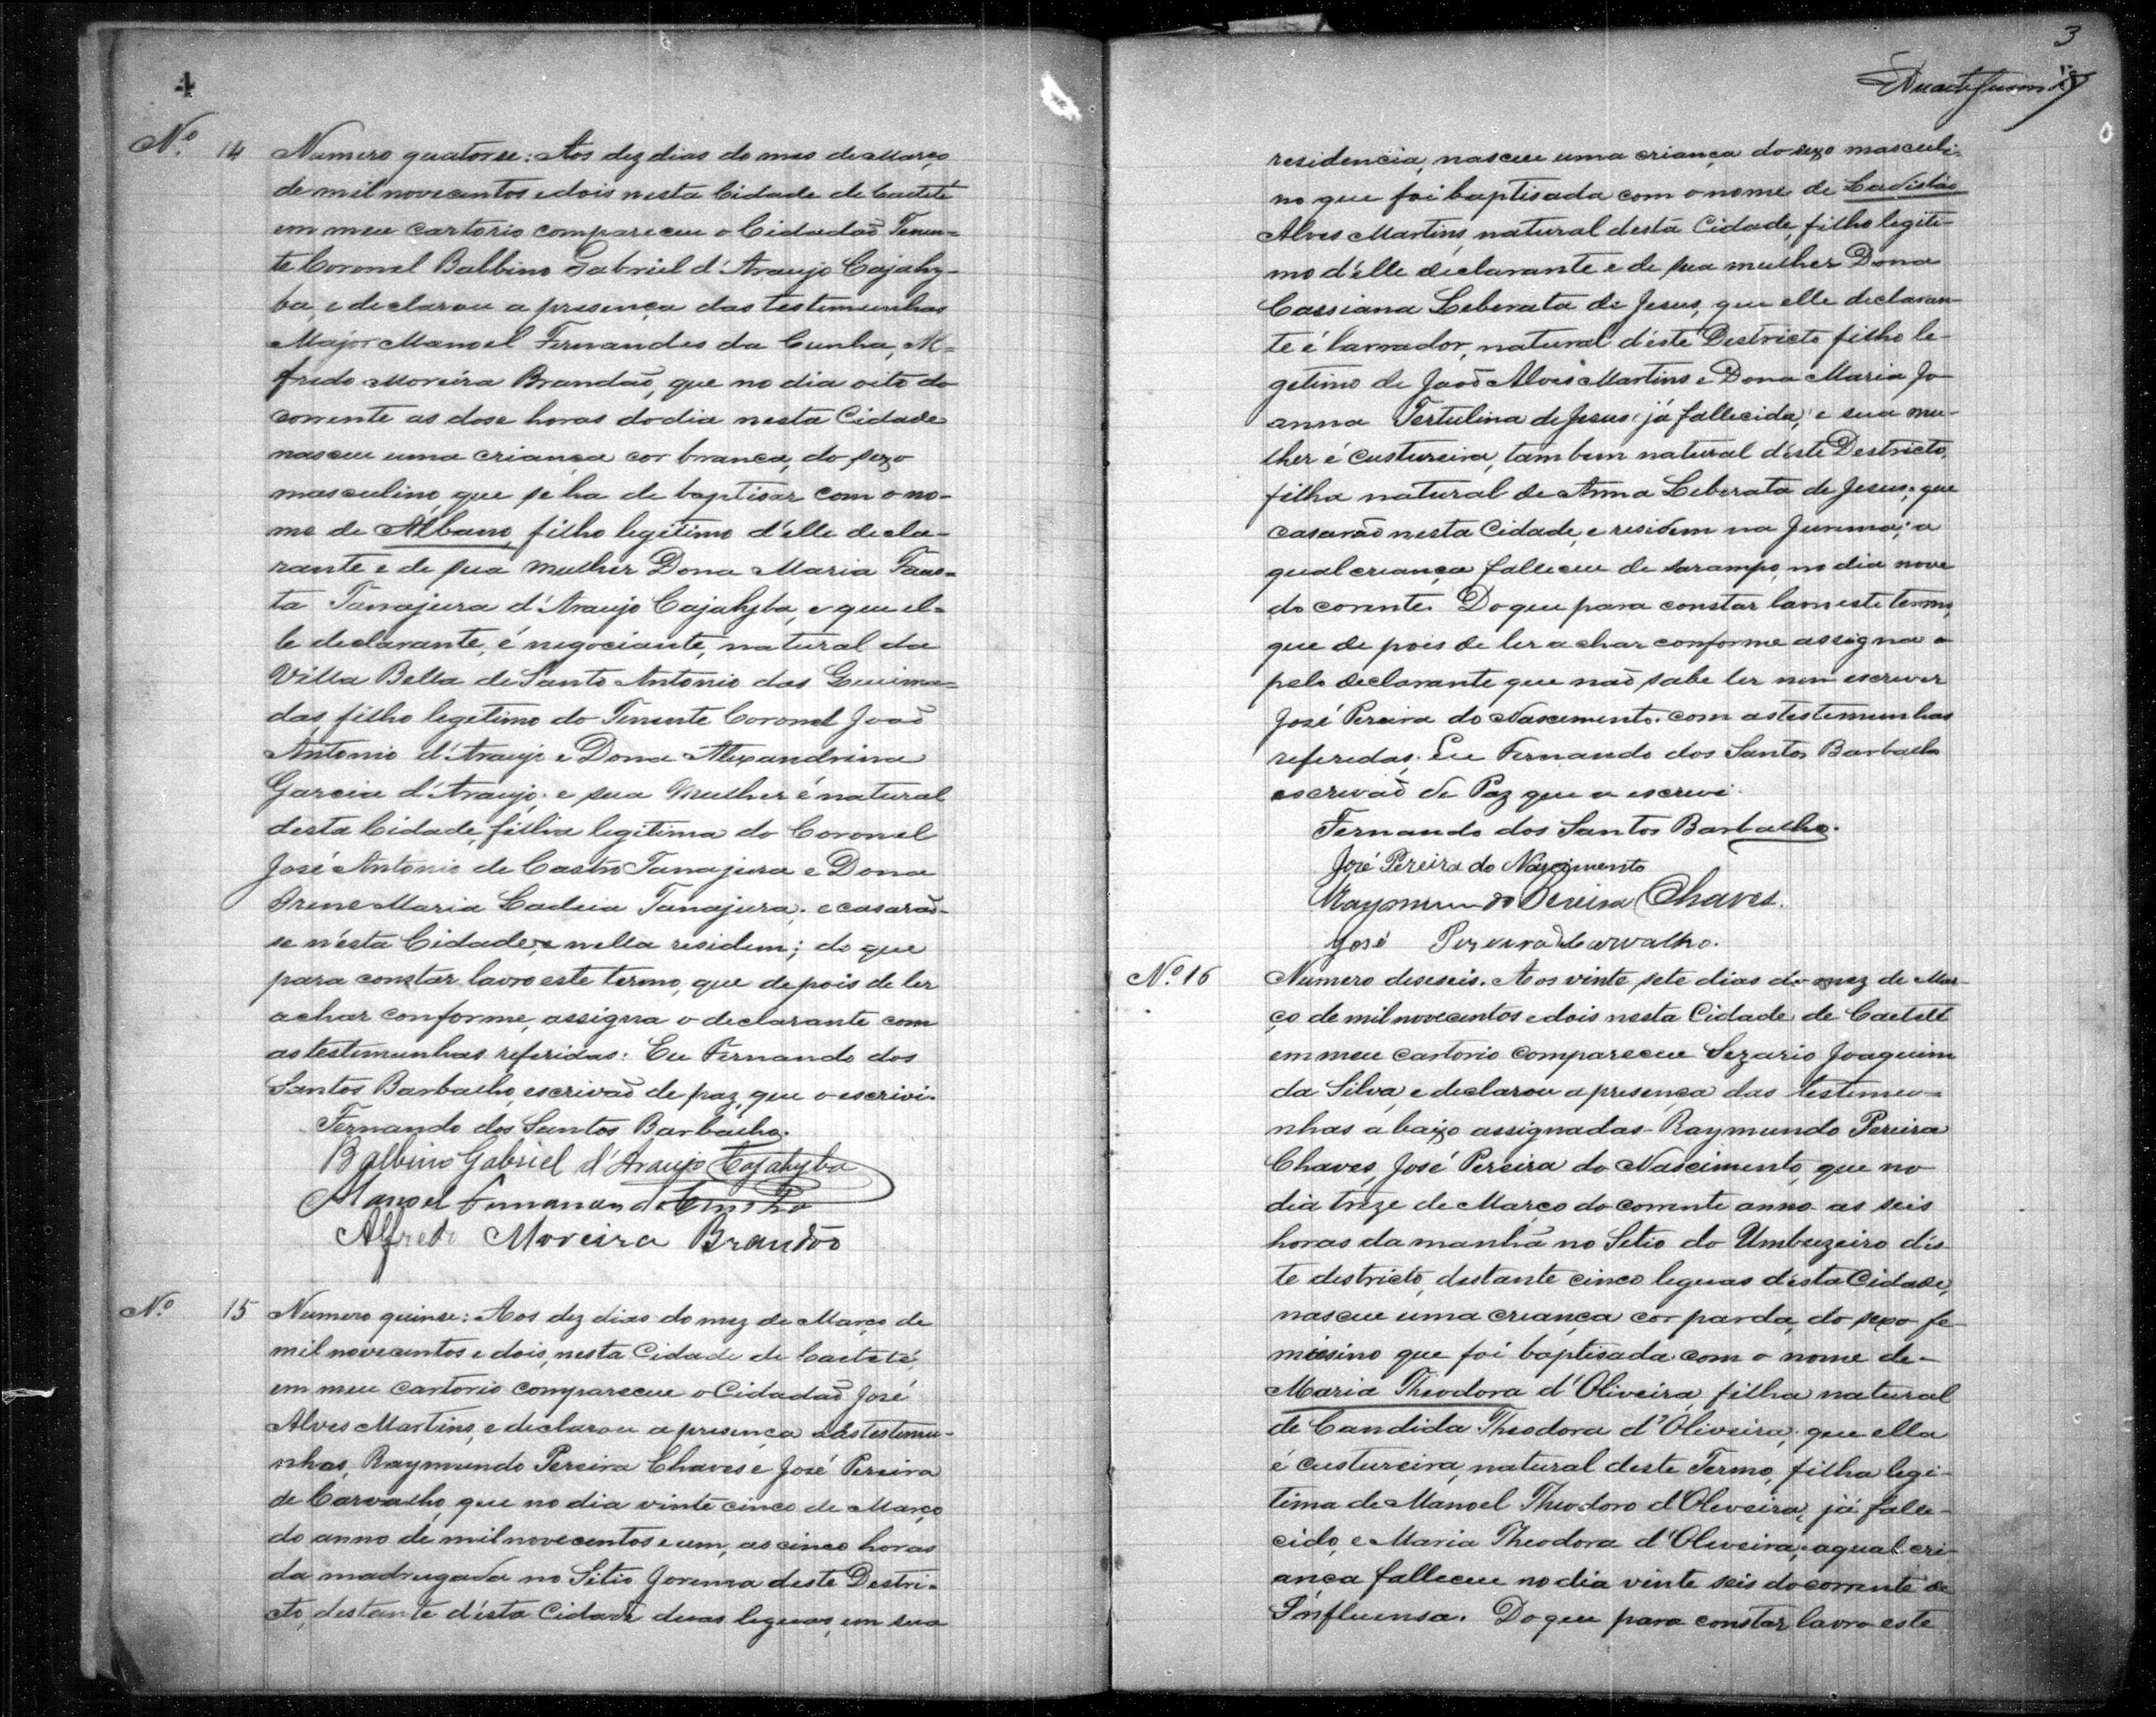 4
Nº 14 Numero quatorse: Aos dez dias do mes de Março
de mil novecentos e dois nesta Cidade de Caeteté
em meu cartorio compareceu o Cidadaõ Tenen=
te Coronel Balbino Gabriel d'Araujo Cajahy-
ba, e declarou a presença das testemunhas
Major Manoel Fernandes da Cunha, Al=
fredo Moreira Brandaõ, que no dia oito do
corrente as dose horas do dia nesta Cidade
nasceu uma criança cor branca, do sexo
masculino, que se ha de baptisar com o no-
me de Albano, filho legitimo d'elle decla-
rante e de sua mulher Dona Maria Faus=
ta Tanajura d'Araujo Cajahyba, e que el=
le declarante, é negociante, natural da
Villa Bella de Santo Antonio das Queima=
das, filho legitimo do Tenente Coronel Joaõ
Antonio d'Araujo e Dona Alexandrina
Garcia d'Araujo; e sua mulher é natural
desta Cidade, filha legitima do Coronel
José Antonio de Castro Tanajura e Dona
Irene Maria Ladeia Tanajura; e casaraõ-
se n'esta Cidade, e nella residem; do que
para constar lavro este termo, que de pois de ler
achar conforme, assigna o declarante com
as testemunhas referidas: Eu Fernando dos
Santos Barbalho, escrivaõ de paz, que o escrivi.
Fernando dos Santos Barbalho.
Balbino Gabriel d'Araujo Cajahyba
Manoel Fernandes da Cunha
Alfredo Moreira Brandão
Nº 15 Numero quinse: Aos dez dias do mez de Março de
mil novecentos e dois, nesta Cidade de Caeteté,
em meu cartorio compareceu o Cidadaõ José
Alves Martins, e declarou a presença das testemu-
nhas, Raymundo Pereira Chaves e José Pereira
de Carvalho, que no dia vinte cinco de Março
do anno de mil novecentos e um, as cinco horas
da madrugada no Sitio Jorema deste Destri-
cto, destante d'esta Cidade duas leguas, em sua
3
residencia, nasceu uma criança do sexo masculi-
no que foi baptisada com o nome de Ladislão
Alves Martins, natural desta Cidade, filho legiti-
mo d'elle declarante e de sua mulher Dona
Cassiana Leberata de Jesus, que elle declaran-
te é lavrador, natural d'este Destricto filho le-
getimo de Joaõ Alves Martins e Dona Maria Jo-
anna Tertulina de Jesus já fallecida; e sua mu-
lher é custureira, tambem natural d'este Destricto,
filha natural de Anna Leberata de Jesus; que
casaraõ nesta Cidade, e residem na Jurema; a
qual creança falleceu de sarampo, no dia nove
do corente. Do que para constar lavro este termo,
que de pois de ler achar conforme assigna a
pelo declarante que naõ sabe ler nem escrever
José Pereira do Nascimento. com as testemunhas
referedas; Eu Fernando dos Santos Barbalho
escrivaõ de Paz que a escrevi.
Fernando dos Santos Barbalho.
José Pereira do Nascimento
Raymundo Pereira Chaves.
José Pereira de Carvalho.
Nº 16 Numero deseseis. Aos vinte sete dias do mez de Mar-
ço de mil novecentos e dois nesta Cidade de Caeteté
em meu cartorio compareceu Sezario Joaquim
da Silva, e declarou a presença das testemu=
nhas abaixo assignadas Raymundo Pereira
Chaves, José Pereira do Nascimento, que no
dia treze de Março do corrente anno as seis
horas da manhã no Setio do Umbuzeiro dés-
te destricto, destante cinco leguas d'esta Cidade,
nasceu uma creança cor parda, do sexo fe-
minino que foi baptisada com o nome de
Maria Theodora d'Oliveira, filha natural
de Candida Theodora d'Oliveira, que ella
é custureira, natural deste Termo, filha legi-
tima de Manoel Theodoro d'Oleveira, já falle-
cido, e Maria Theodora d'Oleveira; a qual cri-
ança falleceu no dia vinte seis do corrente de
Influensa. Do que para constar lavro este